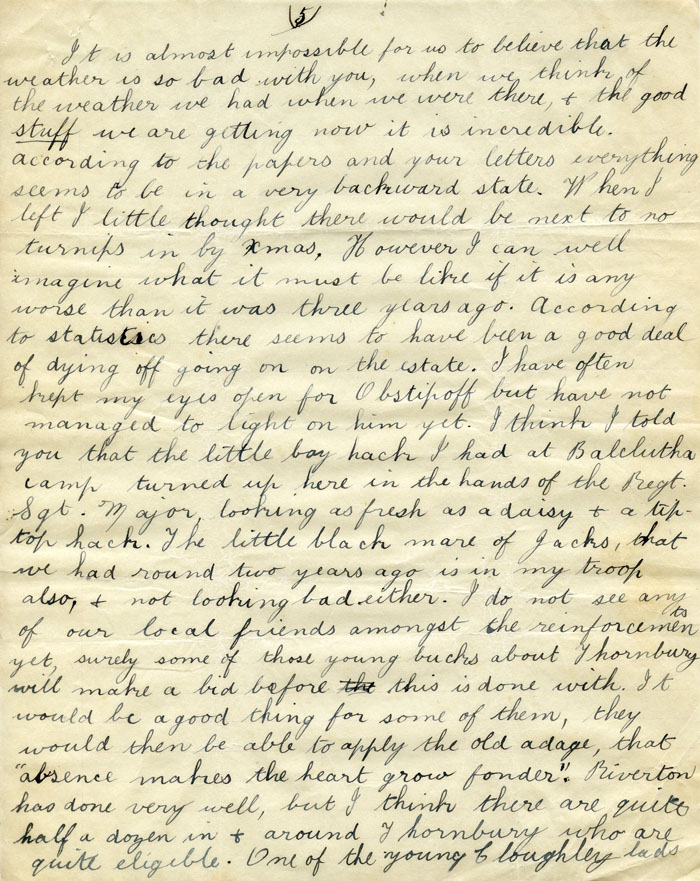 (5)
It is almost impossible for us to believe that the
weather is so bad with you, when we think of
the weather we had when we were there, & the good
stuff we are getting now it is incredible.
according to the papers and your letters everything
seems to be in a very backward state. When I
left I little thought there would be next to no
turnips in by Xmas. However I can well
imagine what it must be like if it is any
worse than it was three years ago. According
to statistics there seems to have been a good deal
of dying off going on on the estate. I have often
kept my eyes open for Obstipoff but have not
managed to light on him yet. I think I told
you that the little bay hack I had at Balclutha
camp turned up here in the hands of the Regt.
Sgt. Major, looking as fresh as a daisy & a tip-
top hack. The little black mare of Jacks, that
we had round two years ago is in my troop
also, & not looking bad either. I do not see any
of our local friends amongst the reinforcements
yet, surely some of those young bucks about Thornbury
will make a bid before the this is done with. It
would be a good thing for some of them, they
would then be able to apply the old adage, that
"absence makes the heart grow fonder". Riverton
has done very well, but I think there are quite
half a dozen in & around Thornbury who are
quite eligible. One of the young Cloughley lads